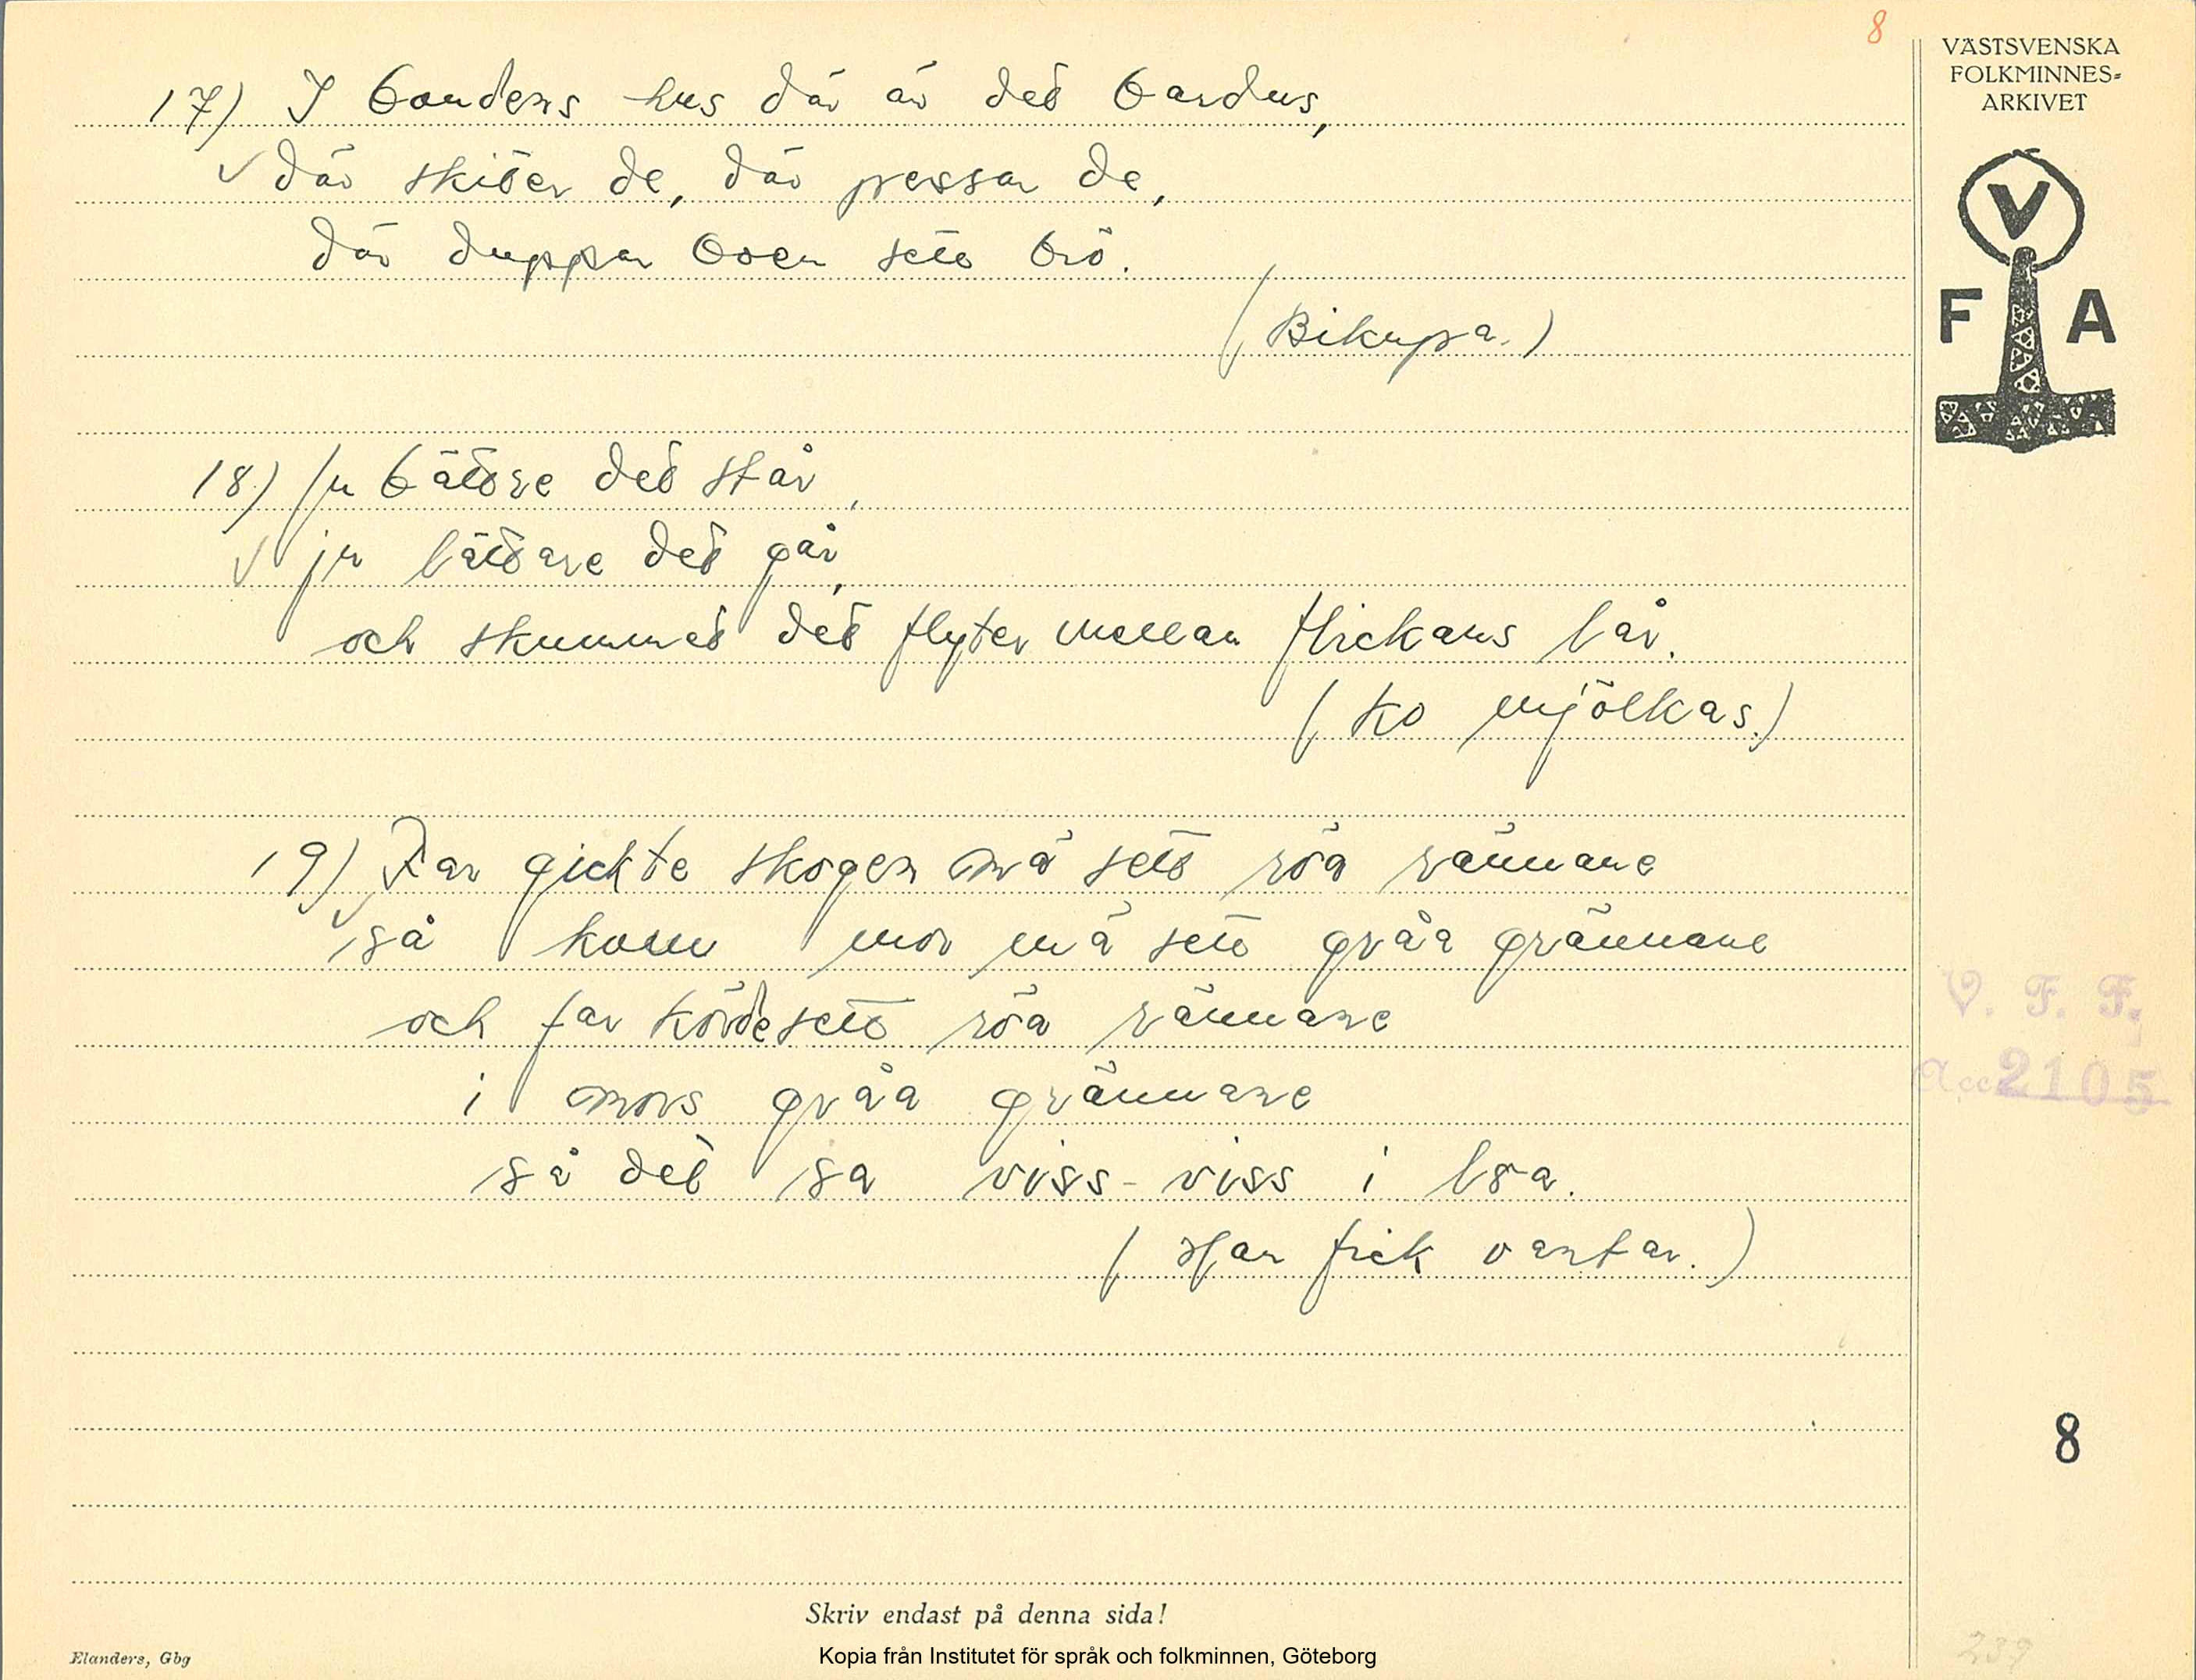 8
VÄSTSVENSKA
FOLKMINNES-
ARKIVET
V
F A
17) I bondens hus där är det bardus,
där skiter de, där pessar de,
där duppar boen sett brö.
(Bikupa.)
18) ju bättre det står,
ju lättare det går,
och skummet det flyter mellan flickans lår.
(Ko mjölkas.)
19) Far gick te skogen mä sett röa rännane
så kom mor mä sett gråa grännane
och far körde sett röa rännane
i mors gråa grännane
så det sa viss-viss i loa.
(Han fick vantar.)
V. F. F.
Acc 2105
8
Skriv endast på denna sida!
Elanders, Gbg
Kopia från Institutet för språk och folkminnen, Göteborg
239